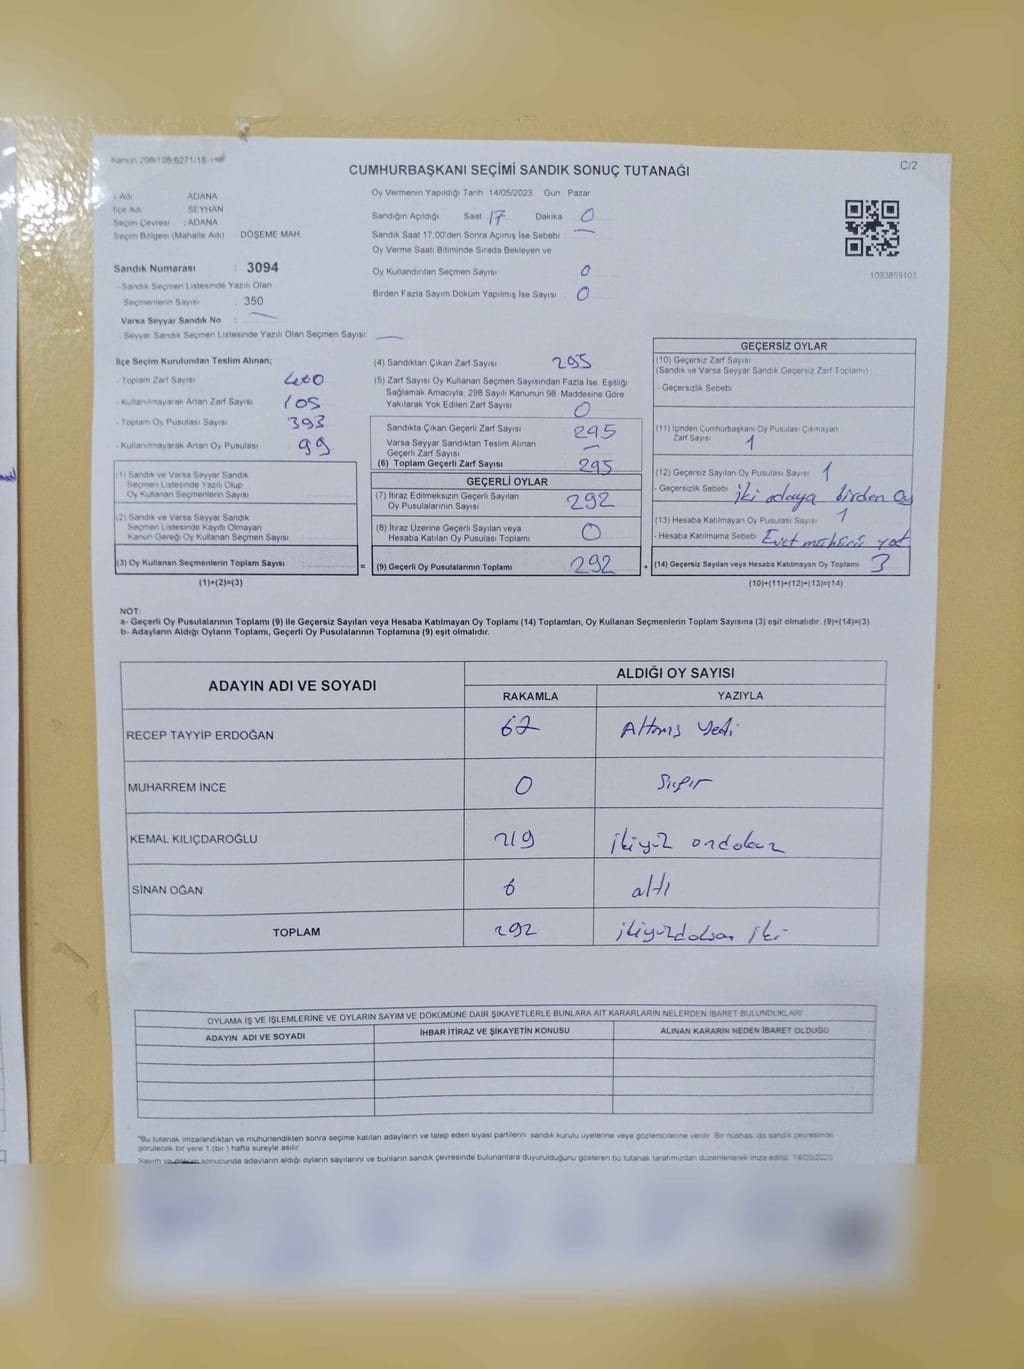 Kanun 298/105 6271/16-1
CUMHURBAŞKANI SEÇİMİ SANDIK SONUÇ TUTANAĞI
C/2
İl Adı ADANA
İlçe Adı SEYHAN
Seçim Çevresi : ADANA
Seçim Bölgesi (Mahalle Adı) DÖŞEME MAH.
Sandık Numarası : 3094
- Sandık Seçmen Listesinde Yazılı Olan
Seçmenlerin Sayısı : 350
Varsa Seyyar Sandık No :
- Seyyar Sandık Seçmen Listesinde Yazılı Olan Seçmen Sayısı:
Oy Vermenin Yapıldığı Tarih 14/05/2023 Gün Pazar
Sandığın Açıldığı Saat 17 Dakika 0
Sandık Saat 17.00'den Sonra Açımış İse Sebebi
Oy Verme Saati Bitiminde Sırada Bekleyen ve
Oy Kullandırılan Seçmen Sayısı 0
Birden Fazla Sayım Döküm Yapılmış İse Sayısı 0
1093869103
İlçe Seçim Kurulundan Teslim Alınan;
- Toplam Zarf Sayısı 400
- Kullanılmayarak Artan Zarf Sayısı 105
- Toplam Oy Pusulası Sayısı 393
- Kullanılmayarak Artan Oy Pusulası 99
(1) Sandık ve Varsa Seyyar Sandık
Seçmen Listesinde Yazılı Olup
Oy Kullanan Seçmenlerin Sayısı
(2) Sandık ve Varsa Seyyar Sandık
Seçmen Listesinde Kayıtlı Olmayan
Kanun Gereği Oy Kullanan Seçmen Sayısı
(3) Oy Kullanan Seçmenlerin Toplam Sayısı :
(1)+(2)=(3)
=
(4) Sandıktan Çıkan Zarf Sayısı 295
(5) Zarf Sayısı Oy Kullanan Seçmen Sayısından Fazla İse, Eşitliği
Sağlamak Amacıyla, 298 Sayılı Kanunun 98. Maddesine Göre
Yakılarak Yok Edilen Zarf Sayısı 0
Sandıkta Çıkan Geçerli Zarf Sayısı 295
Varsa Seyyar Sandıktan Teslim Alınan
Geçerli Zarf Sayısı
(6) Toplam Geçerli Zarf Sayısı 295
GEÇERLİ OYLAR
(7) İtiraz Edilmeksizin Geçerli Sayılan
Oy Pusulalarının Sayısı 292
(8) İtiraz Üzerine Geçerli Sayılan veya
Hesaba Katılan Oy Pusulası Toplamı 0
(9) Geçerli Oy Pusulalarının Toplamı 292
+
GEÇERSİZ OYLAR
(10) Geçersiz Zarf Sayısı
(Sandık ve Varsa Seyyar Sandık Geçersiz Zarf Toplamı)
- Geçersizlik Sebebi
(11) İçinden Cumhurbaşkanı Oy Pusulası Çıkmayan
Zarf Sayısı 1
(12) Geçersiz Sayılan Oy Pusulası Sayısı 1
- Geçersizlik Sebebi iki adaya birden oy
(13) Hesaba Katılmayan Oy Pusulası Sayısı 1
- Hesaba Katılmama Sebebi Evet mühürü yok
(14) Geçersiz Sayılan veya Hesaba Katılmayan Oy Toplamı 3
(10)+(11)+(12)+(13)=(14)
NOT:
a- Geçerli Oy Pusulalarının Toplamı (9) ile Geçersiz Sayılan veya Hesaba Katılmayan Oy Toplamı (14) Toplamları, Oy Kullanan Seçmenlerin Toplam Sayısına (3) eşit olmalıdır. (9)+(14)=(3)
b- Adayların Aldığı Oyların Toplamı, Geçerli Oy Pusulalarının Toplamına (9) eşit olmalıdır.
ADAYIN ADI VE SOYADI
ALDIĞI OY SAYISI
RAKAMLA YAZIYLA
RECEP TAYYİP ERDOĞAN 67 Altmış Yedi
MUHARREM İNCE 0 Sıfır
KEMAL KILIÇDAROĞLU 219 ikiyüz ondokuz
SİNAN OĞAN 6 altı
TOPLAM 292 ikiyüzdoksan iki
OYLAMA İŞ VE İŞLEMLERİNE VE OYLARIN SAYIM VE DÖKÜMÜNE DAİR ŞİKAYETLERLE BUNLARA AİT KARARLARIN NELERDEN İBARET BULUNDUKLARI
ADAYIN ADI VE SOYADI İHBAR İTİRAZ VE ŞİKAYETİN KONUSU ALINAN KARARIN NEDEN İBARET OLDUĞU
"Bu tutanak imzalandıktan ve mühürlendikten sonra seçime katılan adayların ve talep eden siyasi partilerin sandık kurulu üyelerine veya gözlemcilerine verilir. Bir nüshası da sandık çevresinde
görülecek bir yere 1 (bir) hafta süreyle asılır.
Sayım ve döküm sonucunda adayların aldığı oyların sayılarını ve bunların sandık çevresinde bulunanlara duyurulduğunu gösteren bu tutanak tarafımızdan düzenlenerek imza edildi. 14/05/2023